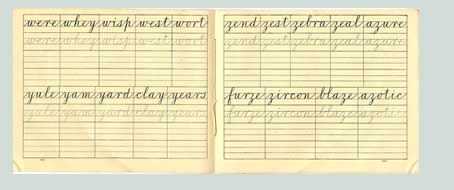 were whey wisp west wort
were whey wisp west wort
yule yam yard clay years
yule yam yard clay years
zend zest zebra zeal azure
zend zest zebra zeal azure
furze zircon blaze azotic
furze zircon blaze azotic